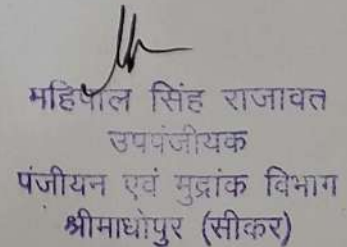 महिपाल सिंह राजावत
उपपंजीयक
पंजीयन एवं मुद्रांक विभाग
श्रीमाधोपुर (सीकर)